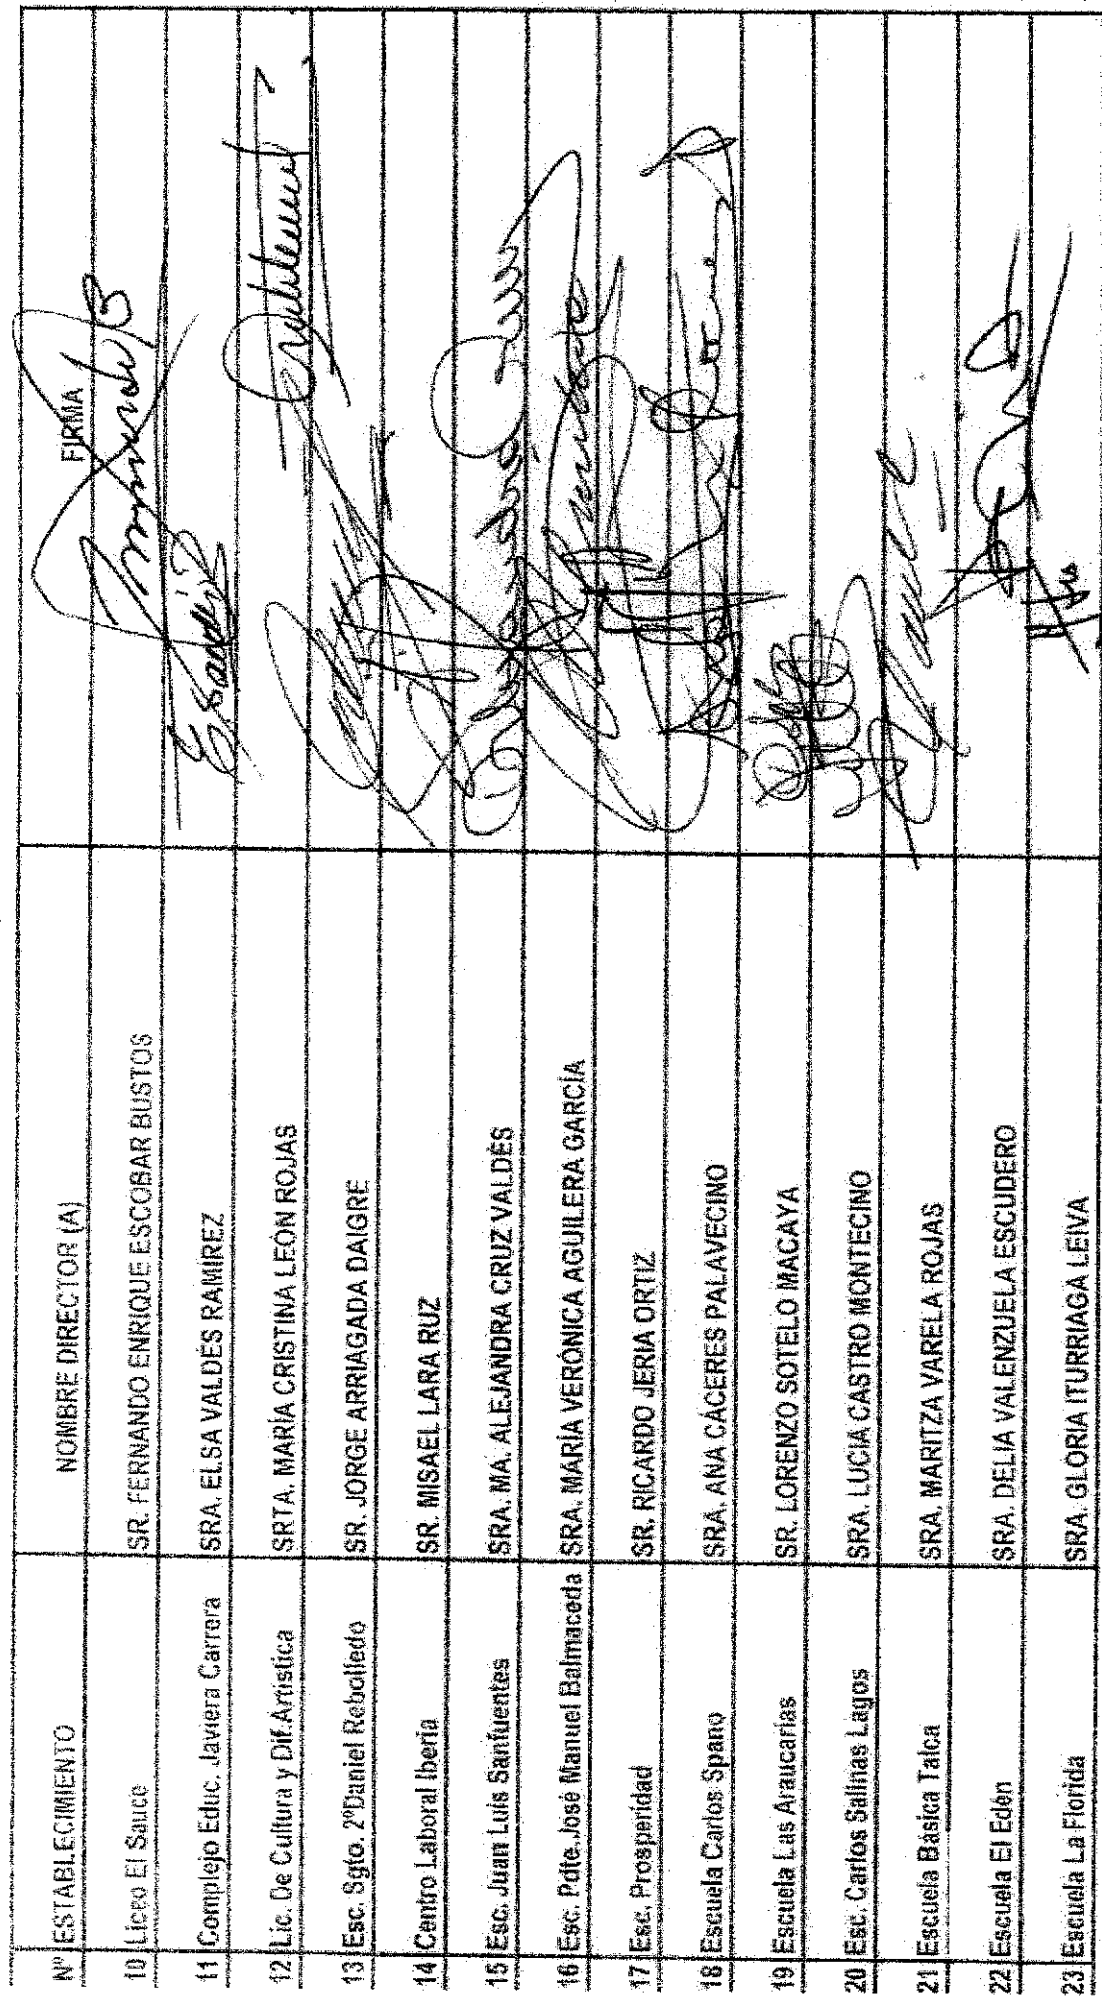 Nº ESTABLECIMIENTO NOMBRE DIRECTOR (A) FIRMA
10 Liceo El Sauce SR. FERNANDO ENRIQUE ESCOBAR BUSTOS
11 Complejo Educ. Javiera Carrera SRA. ELSA VALDÉS RAMÍREZ
12 Lic. De Cultura y Dif.Artística SRTA. MARÍA CRISTINA LEÓN ROJAS
13 Esc. Sgto. 2ºDaniel Rebolledo SR. JORGE ARRIAGADA DAIGRE
14 Centro Laboral Iberia SR. MISAEL LARA RUZ
15 Esc. Juan Luis Sanfuentes SRA. MA. ALEJANDRA CRUZ VALDÉS
16 Esc. Pdte.José Manuel Balmaceda SRA. MARÍA VERÓNICA AGUILERA GARCÍA
17 Esc. Prosperidad SR. RICARDO JERIA ORTIZ
18 Escuela Carlos Spano SRA. ANA CÁCERES PALAVECINO
19 Escuela Las Araucarias SR. LORENZO SOTELO MACAYA
20 Esc. Carlos Salinas Lagos SRA. LUCIA CASTRO MONTECINO
21 Escuela Básica Talca SRA. MARITZA VARELA ROJAS
22 Escuela El Edén SRA. DELIA VALENZUELA ESCUDERO
23 Escuela La Florida SRA. GLORIA ITURRIAGA LEIVA